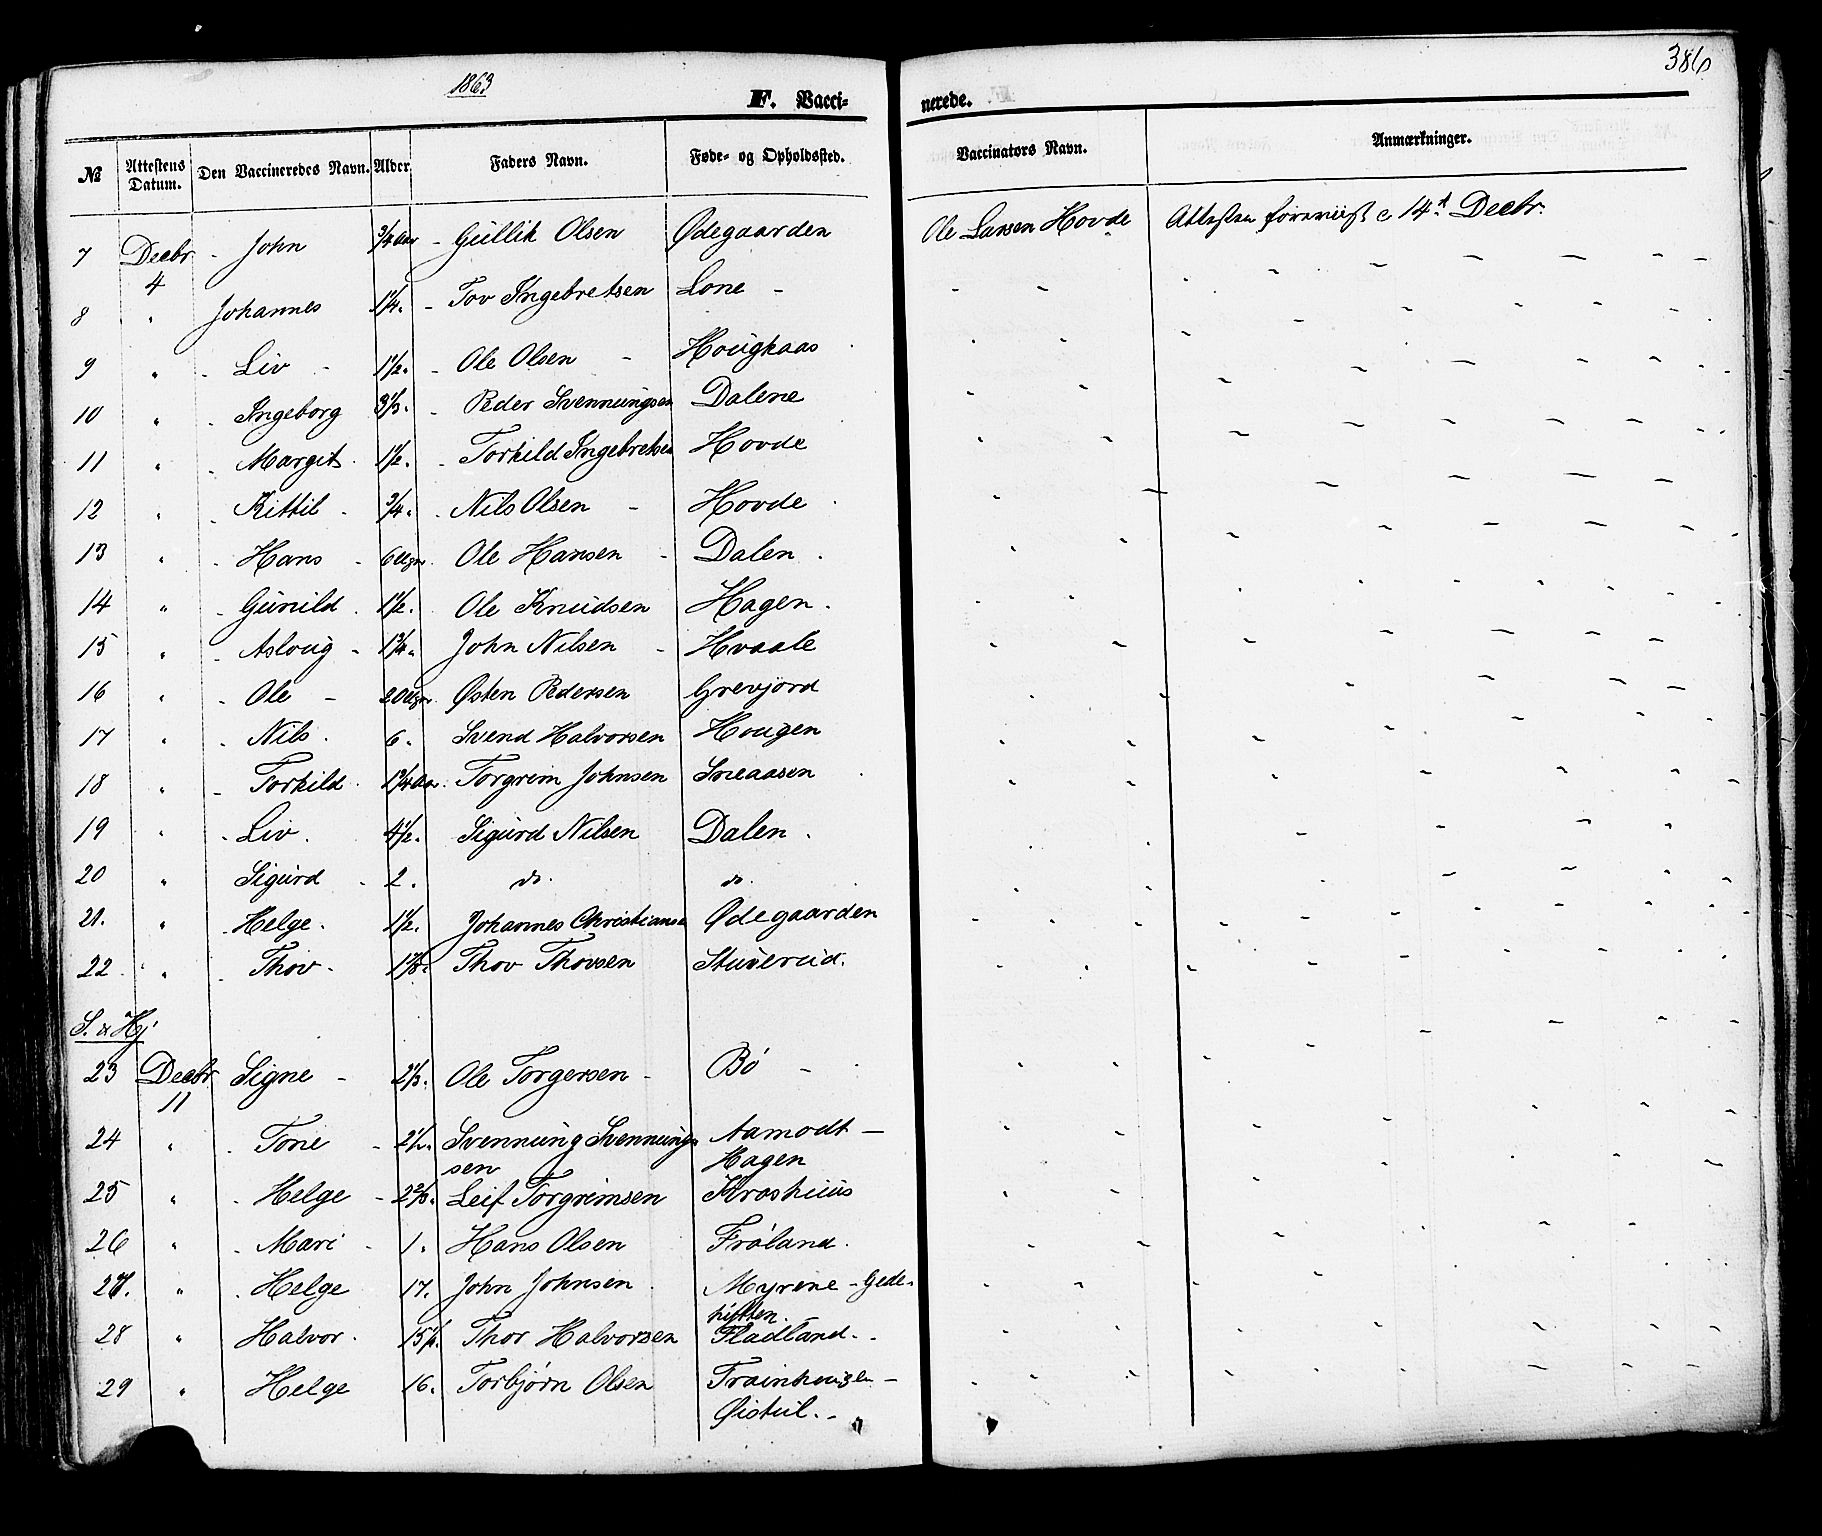 386
1863
F. Vacci-
nerede.
№ Attestens Datum. Den Vaccineredes Navn. Alder Faders Navn. Føde- og Opholdssted. Vaccinators Navn. Anmærkninger.
7 Decbr 4 - John 3/4 Aar - Gullik Olsen Ødegaarden Ole Larsen Hovde Attesten foreviist 14d Decbr.
8 " Johannes 1 1/4. - Tov Ingebretsen Lone -
9 " - Liv - 1 1/2. - Ole Olsen - Hougkaas
10 " - Ingeborg 3 1/3. - Peder Svennungsen Dalene
11 " - Margit. 1 1/2. - Torkild Ingebretsen Hovde
12 " - Kittil - 3/4. - Nils Olsen - Hovde
13 " - Hans - 6 Ugr. Ole Hansen - Dalen.
14 " - Gunild. 1 1/2. Ole Knudsen Hagen.
15 " - Asloug - 1 3/4. John Nilsen - Hvaale
16 " - Ole - 20 Ugr. Østen Pedersen Grevjord
17 " - Nils. 6. Svend Halvorsen Hougen
18 " - Torkild. 1 3/4 Aar. Torgrim Johnsen Sneaasen
19 " - Liv. 4 1/2. Sigurd Nilsen Dalen.
20 " Sigurd - 2. do. do.
21. " - Helge. 1 1/2. Johannes Christiansen Ødegaarden
22. " - Thov. 1 1/8. Thov Thovsen Stuverud.
S. & Hj
23 Decbr 11 Signe - 2 1/3. Ole Torgersen - Bö -
24 " - Tone - 2 1/2. Svennung Svennung- Aamodt -
sen Hagen
25 " - Helge - 2 2/3. Leif Torgrimsen Kroshuus
26 " - Mari - 1. Hans Olsen Fröland.
27. " - Helge 17. John Johnsen. Myrene - Gede-
hytten.
28 " Halvor. 15 1/2. Thor Halvorsen Fladland.
29 " Helge 16. Torbjørn Olsen
Øistul.